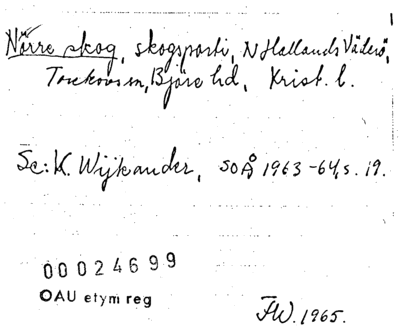 Nörre skog, skogsparti, N Hallands Väderö,
Torekovs sn, Bjäre hd, Krist. l.
Sc: K. Wijkander, SOÅ 1963-64, s. 19.
00024699
OAU etym reg
1965.